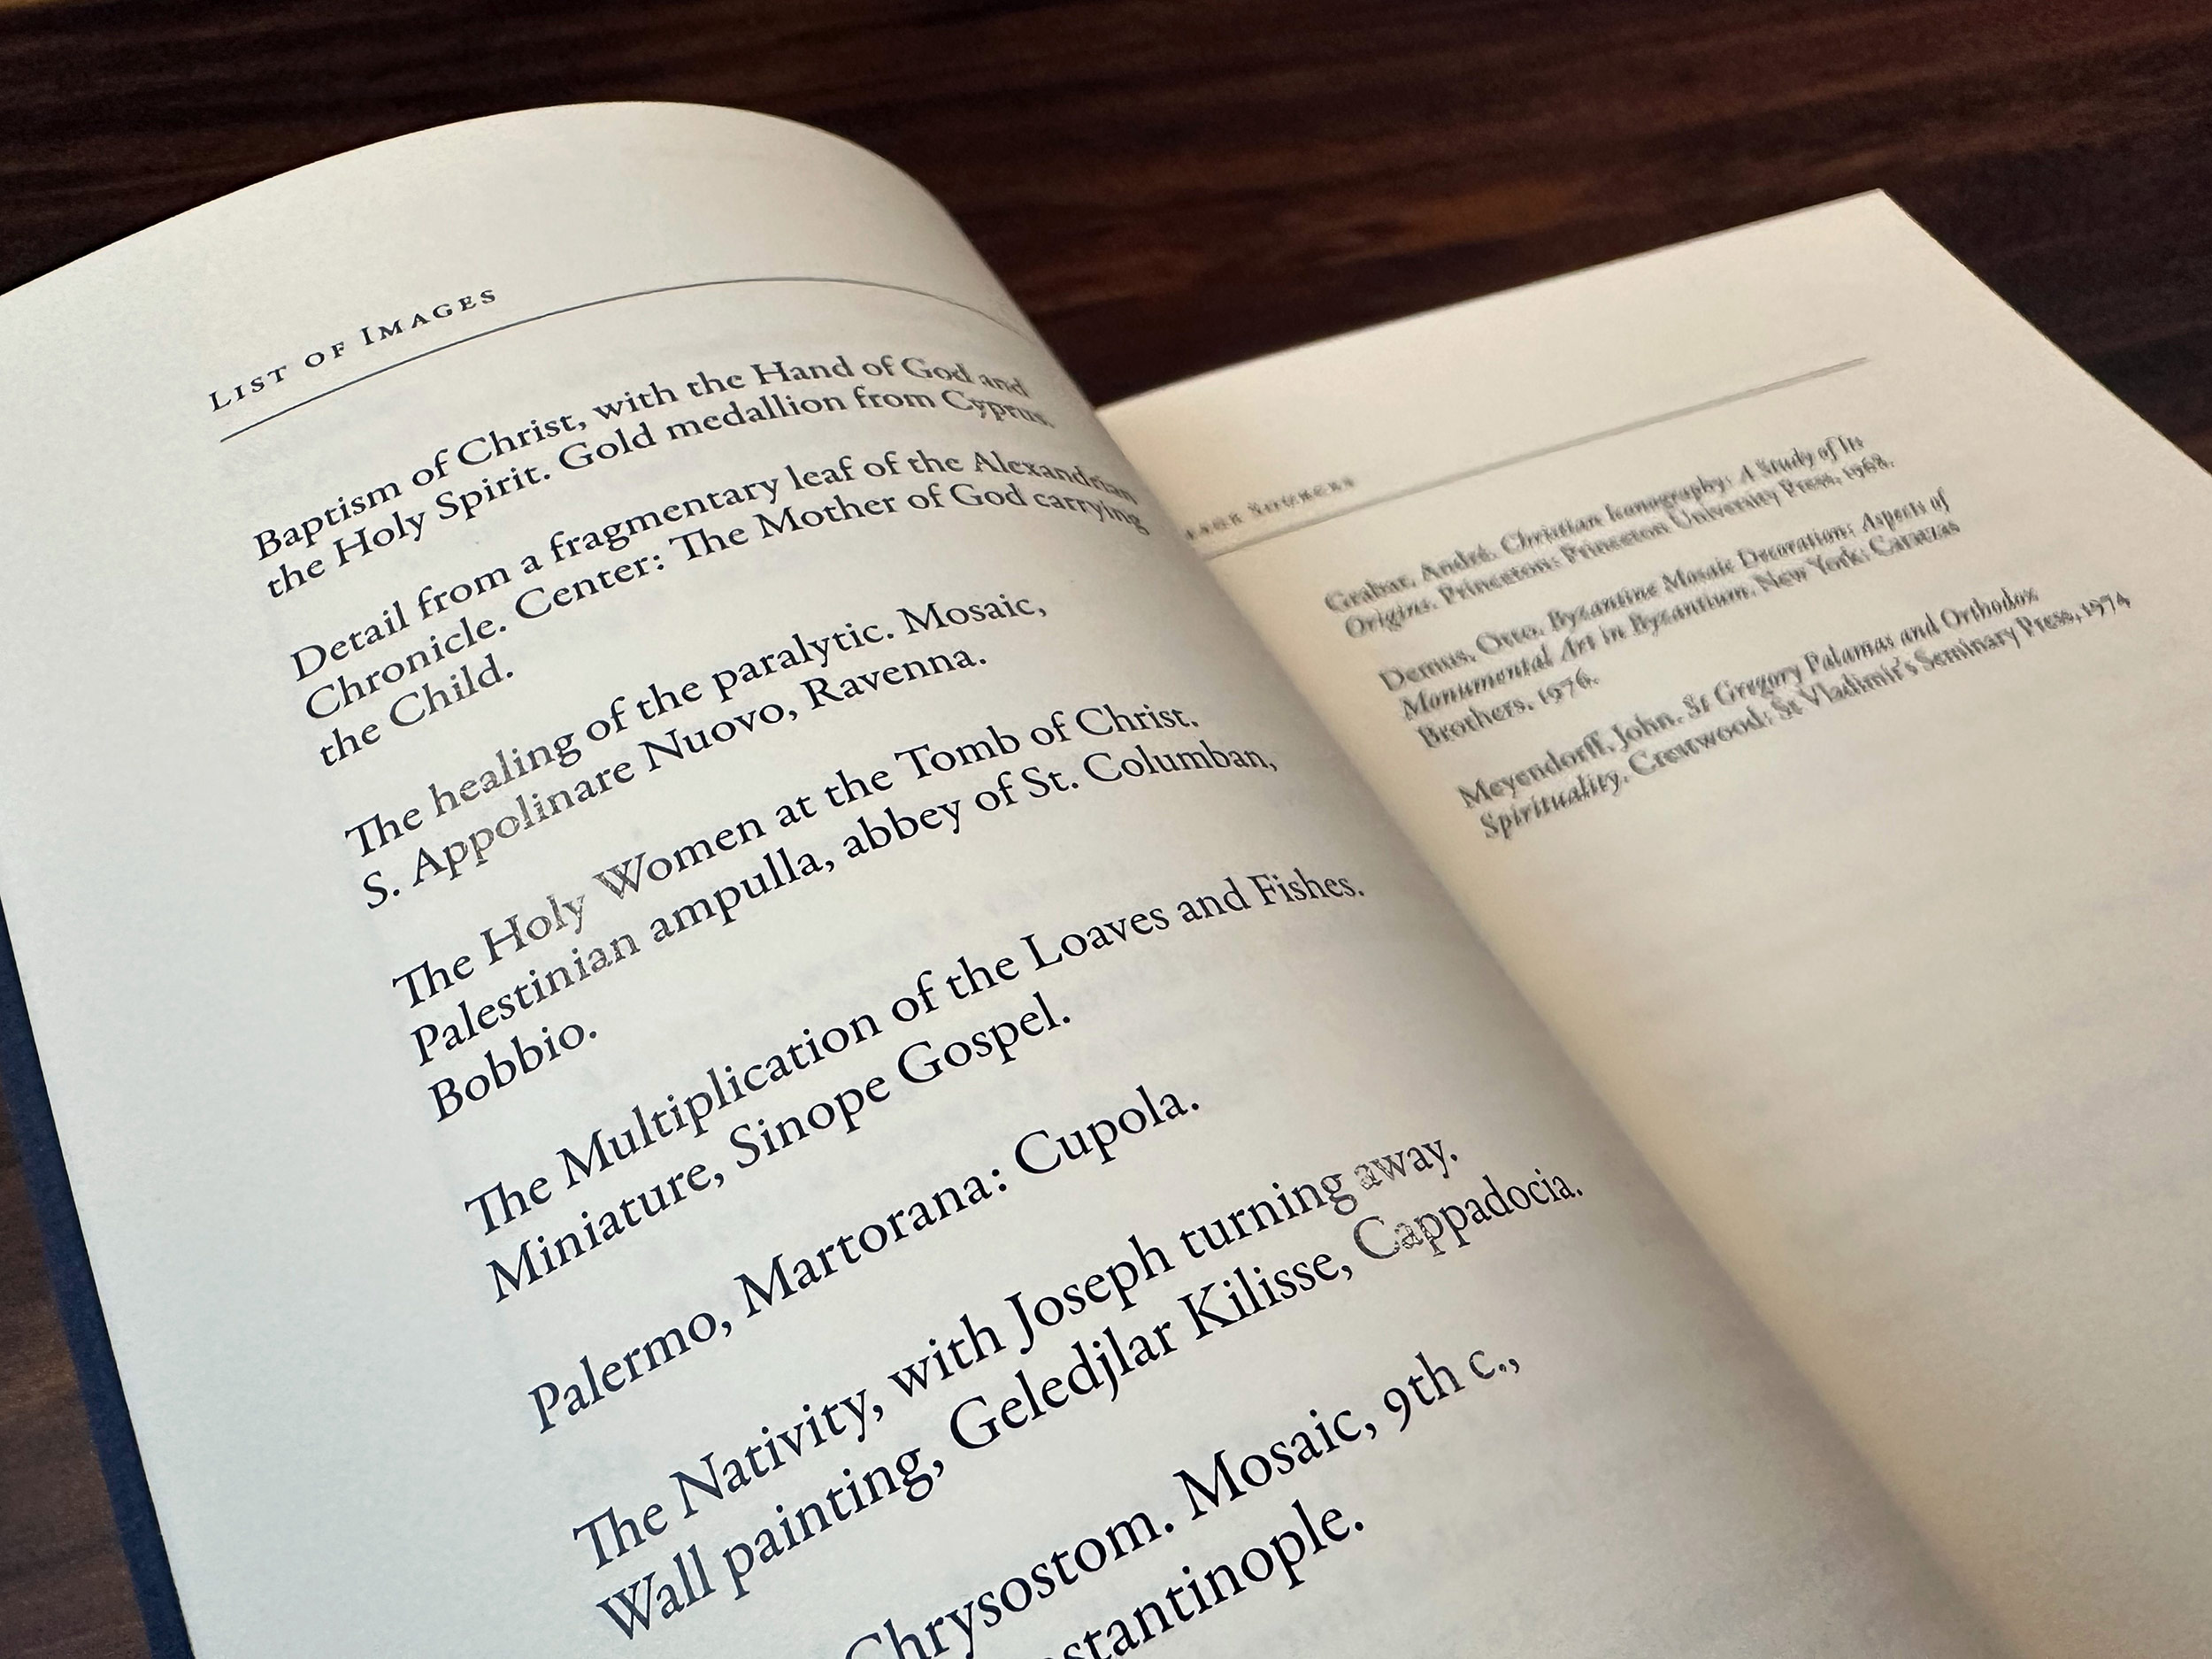 LIST OF IMAGES
Baptism of Christ, with the Hand of God and
the Holy Spirit. Gold medallion from Cyprus.
Detail from a fragmentary leaf of the Alexandrian
Chronicle. Center: The Mother of God carrying
the Child.
The healing of the paralytic. Mosaic,
S. Appolinare Nuovo, Ravenna.
The Holy Women at the Tomb of Christ.
Palestinian ampulla, abbey of St. Columban,
Bobbio.
The Multiplication of the Loaves and Fishes.
Miniature, Sinope Gospel.
Palermo, Martorana: Cupola.
The Nativity, with Joseph turning away.
Wall painting, Geledjlar Kilisse, Cappadocia.
Chrysostom. Mosaic, 9th c.,
stantinople.
SOURCES
Grabar, André. Christian Iconography: A Study of Its
Origins. Princeton: Princeton University Press, 1968.
Demus, Otto. Byzantine Mosaic Decoration: Aspects of
Monumental Art in Byzantium. New York: Caratzas
Brothers, 1976.
Meyendorff, John. St Gregory Palamas and Orthodox
Spirituality. Crestwood: St Vladimir's Seminary Press, 1974